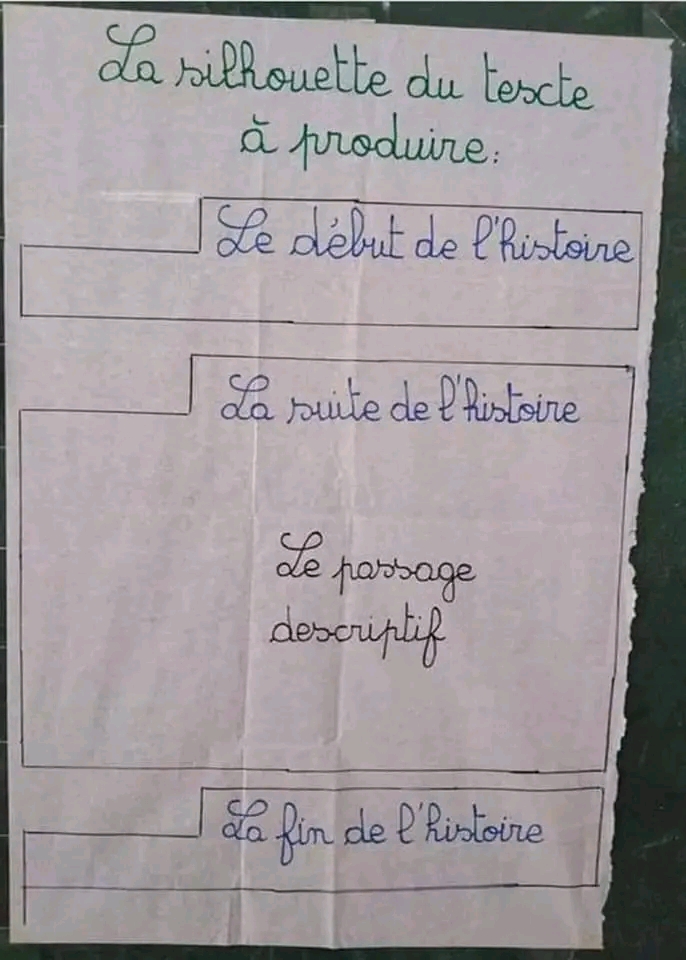 La silhouette du texte
à produire:
Le début de l'histoire
La suite de l'histoire
Le passage
descriptif
La fin de l'histoire